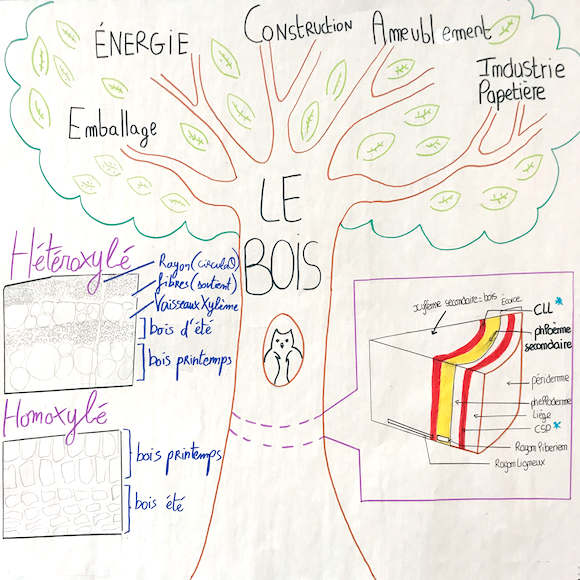 ÉNERGIE
CONSTRUCTION
AMEUBLEMENT
Imdustrie
Papetière
Emballage
LE
BOIS
Hétéroxylé
Rayon (circulaO)
fibres (soutient)
Vaisseaux Xylème
bois d'été
bois printemps
Homoxylé
bois printemps
bois été
xylème secondaire = bois
Ecorce
CLL *
phloème
secondaire
périderme
phelloderme
liège
CSP *
Rayon liberien
Rayon ligneux